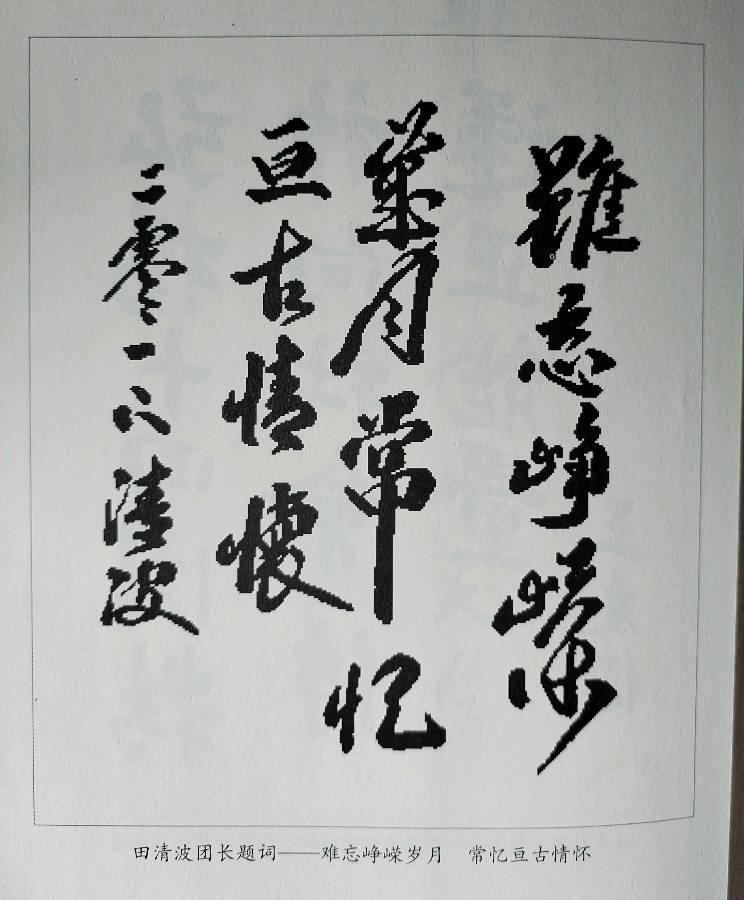 難忘峥嵘
歲月常忆
亘古情懷
二零一六 清波
田清波团长题词——难忘峥嵘岁月 常忆亘古情怀